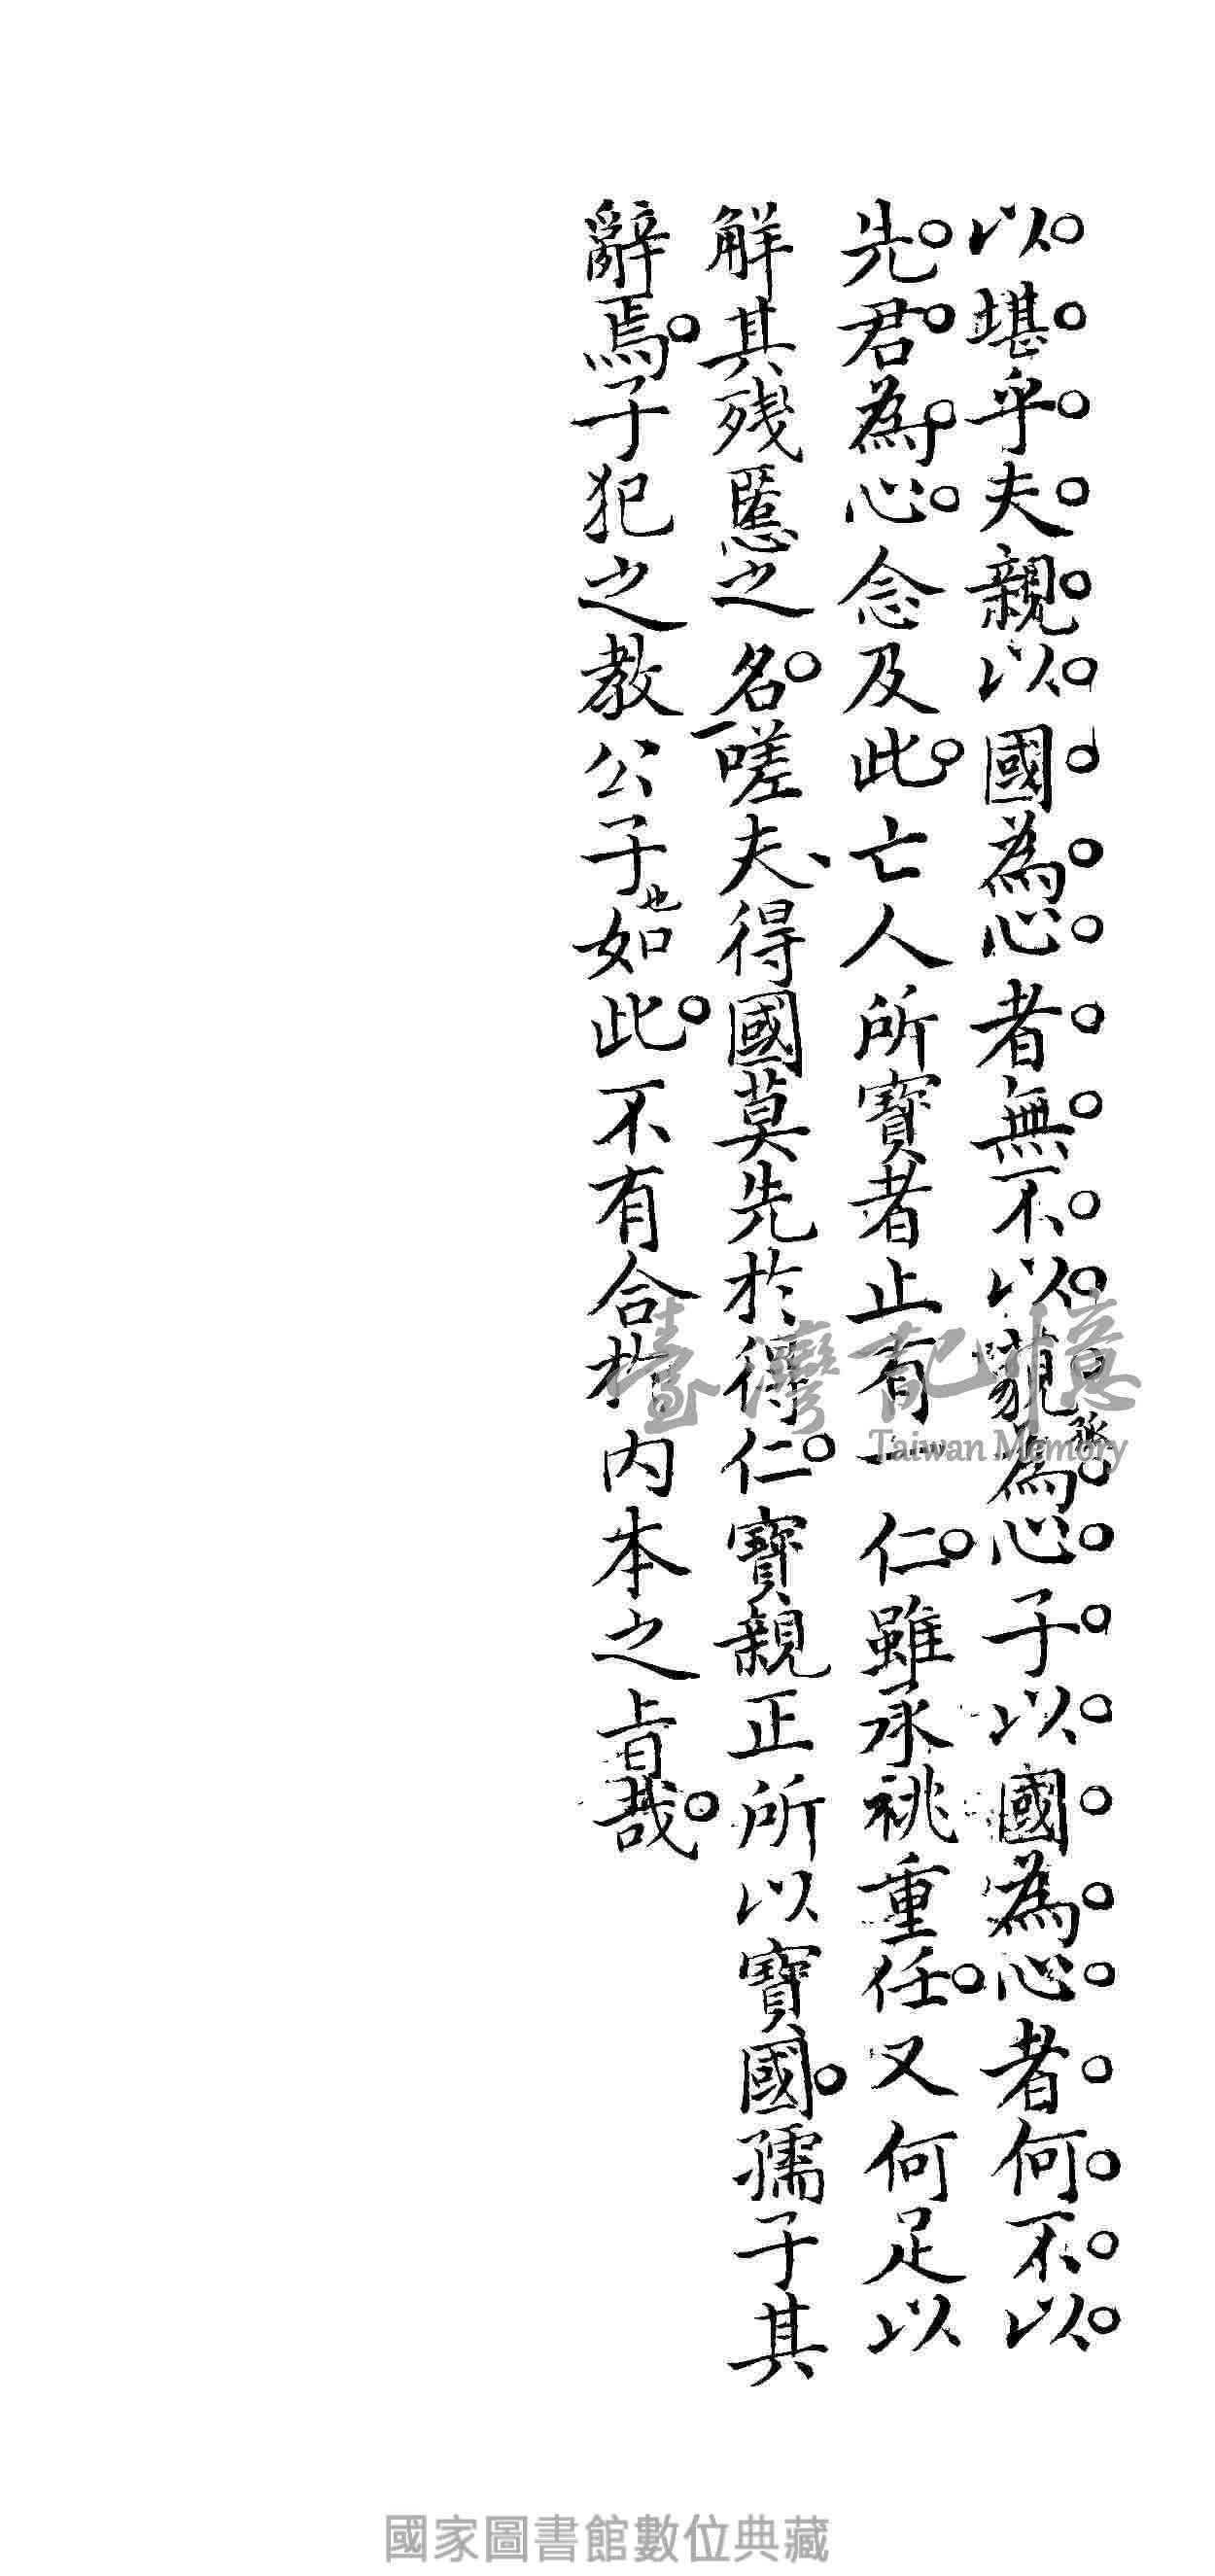 以堪乎夫親以國為心者無不以藐為心子以國為心者何不以
先君為心念及此亡人所寶者止有一仁雖承祧重任又何足以
解其殘慝之名嗟夫得國莫先於得仁寶親正所以寶國孺子其
辭焉子犯之教公子也如此不有合於內本之旨哉
臺灣記憶
Taiwan Memory
國家圖書館數位典藏